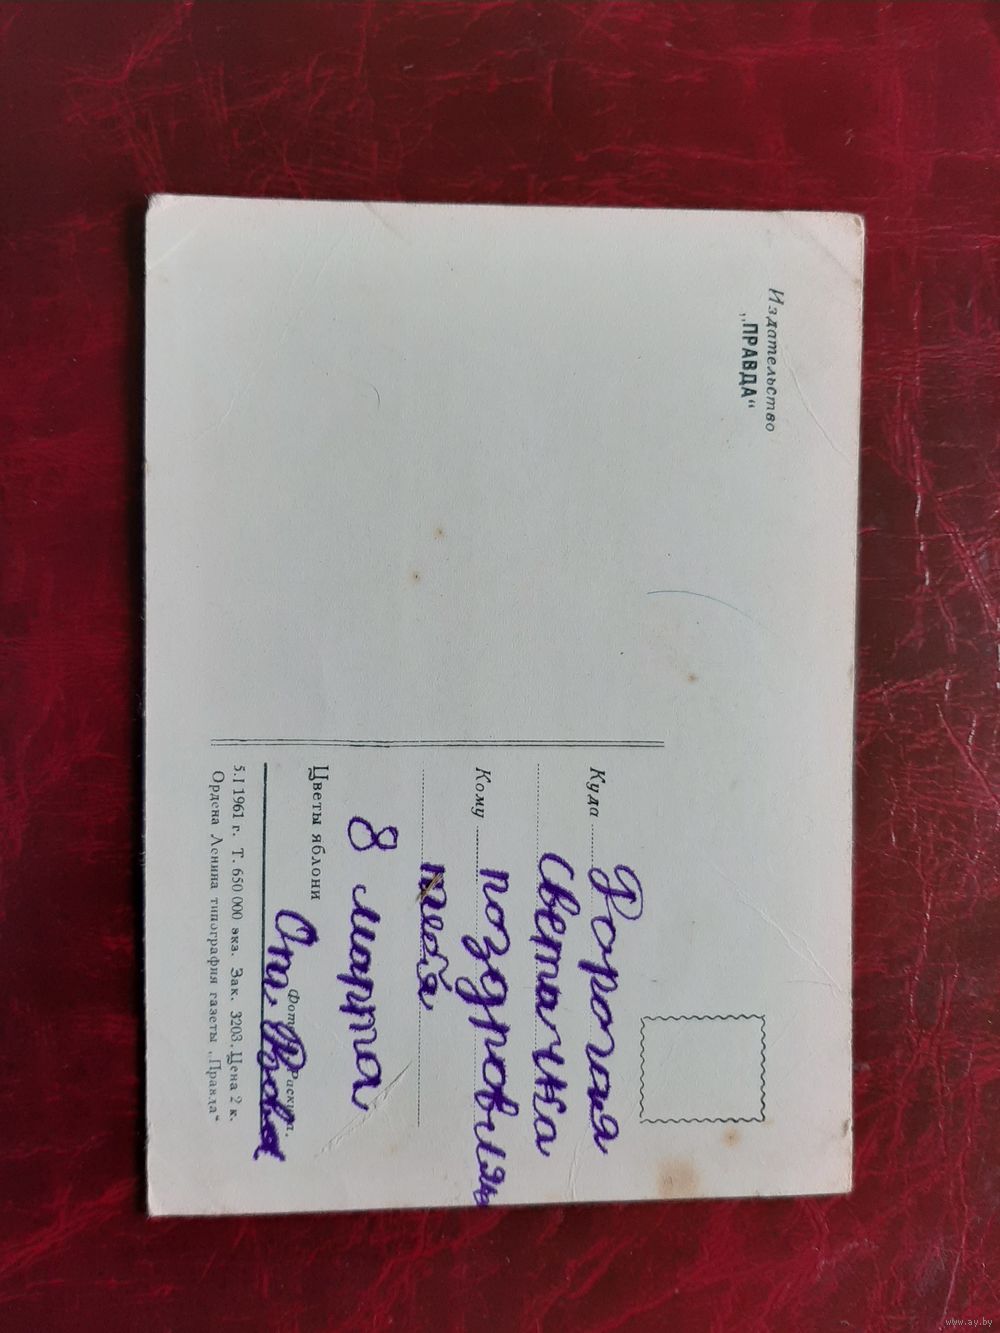 Издательство
„ПРАВДА“
Куда
Дорогая
Светачка
Кому
поздровляю
тебя
8 марта
Цветы яблони
Фото Раскина.
От
5.I 1961 г. Т. 650 000 экз. Зак. 3203. Цена 2 к.
Ордена Ленина типография газеты „Правда“
www.ay.by